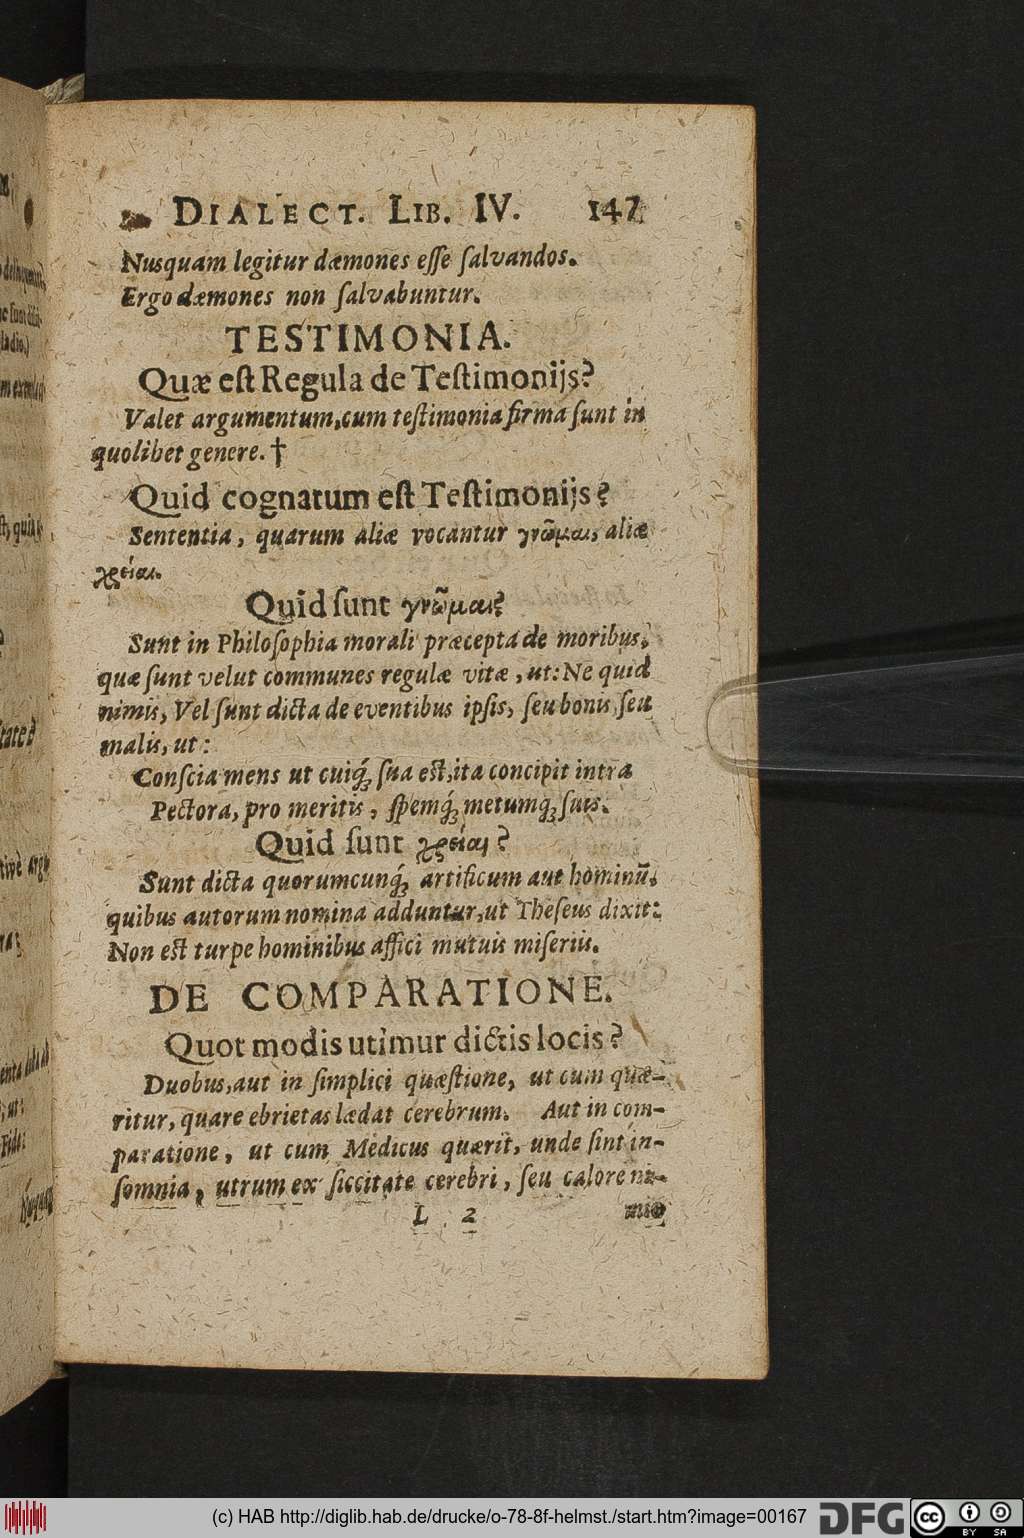 DIALECT. LIB. IV. 147
Nusquam legitur dæmones eſſe ſalvandos.
Ergo dæmones non ſalvabuntur.
TESTIMONIA.
Quæ eſt Regula de Teſtimonijs?
Valet argumentum, cum teſtimonia firma ſunt in
quolibet genere. †
Quid cognatum eſt Teſtimonijs?
Sententia, quarum aliæ vocantur γνῶμαι, aliæ
χρεῖαι.
Quid ſunt γνῶμαι?
Sunt in Philoſophia morali præcepta de moribus,
quæ ſunt velut communes regulæ vitæ, ut: Ne quid
nimis, Vel ſunt dicta de eventibus ipſis, ſeu bonis, ſeu
malis, ut:
Conſcia mens ut cuiq́ꝫ ſua eſt, ita concipit intra
Pectora, pro meritis, ſpemq́ꝫ metumq́ꝫ ſuis.
Quid ſunt χρεῖαι?
Sunt dicta quorumcunq́ꝫ artificum aut hominũ,
quibus autorum nomina adduntur, ut Theſeus dixit:
Non eſt turpe hominibus affici mutuis miſeriis.
DE COMPARATIONE.
Quot modis utimur dictis locis?
Duobus, aut in ſimplici quæſtione, ut cum quæ-
ritur, quare ebrietas lædat cerebrum. Aut in com-
paratione, ut cum Medicus quærit, unde ſint in-
ſomnia, utrum ex ſiccitate cerebri, ſeu calore ni-
L 2 mio
(c) HAB http://diglib.hab.de/drucke/o-78-8f-helmst./start.htm?image=00167
DFG
cc BY SA